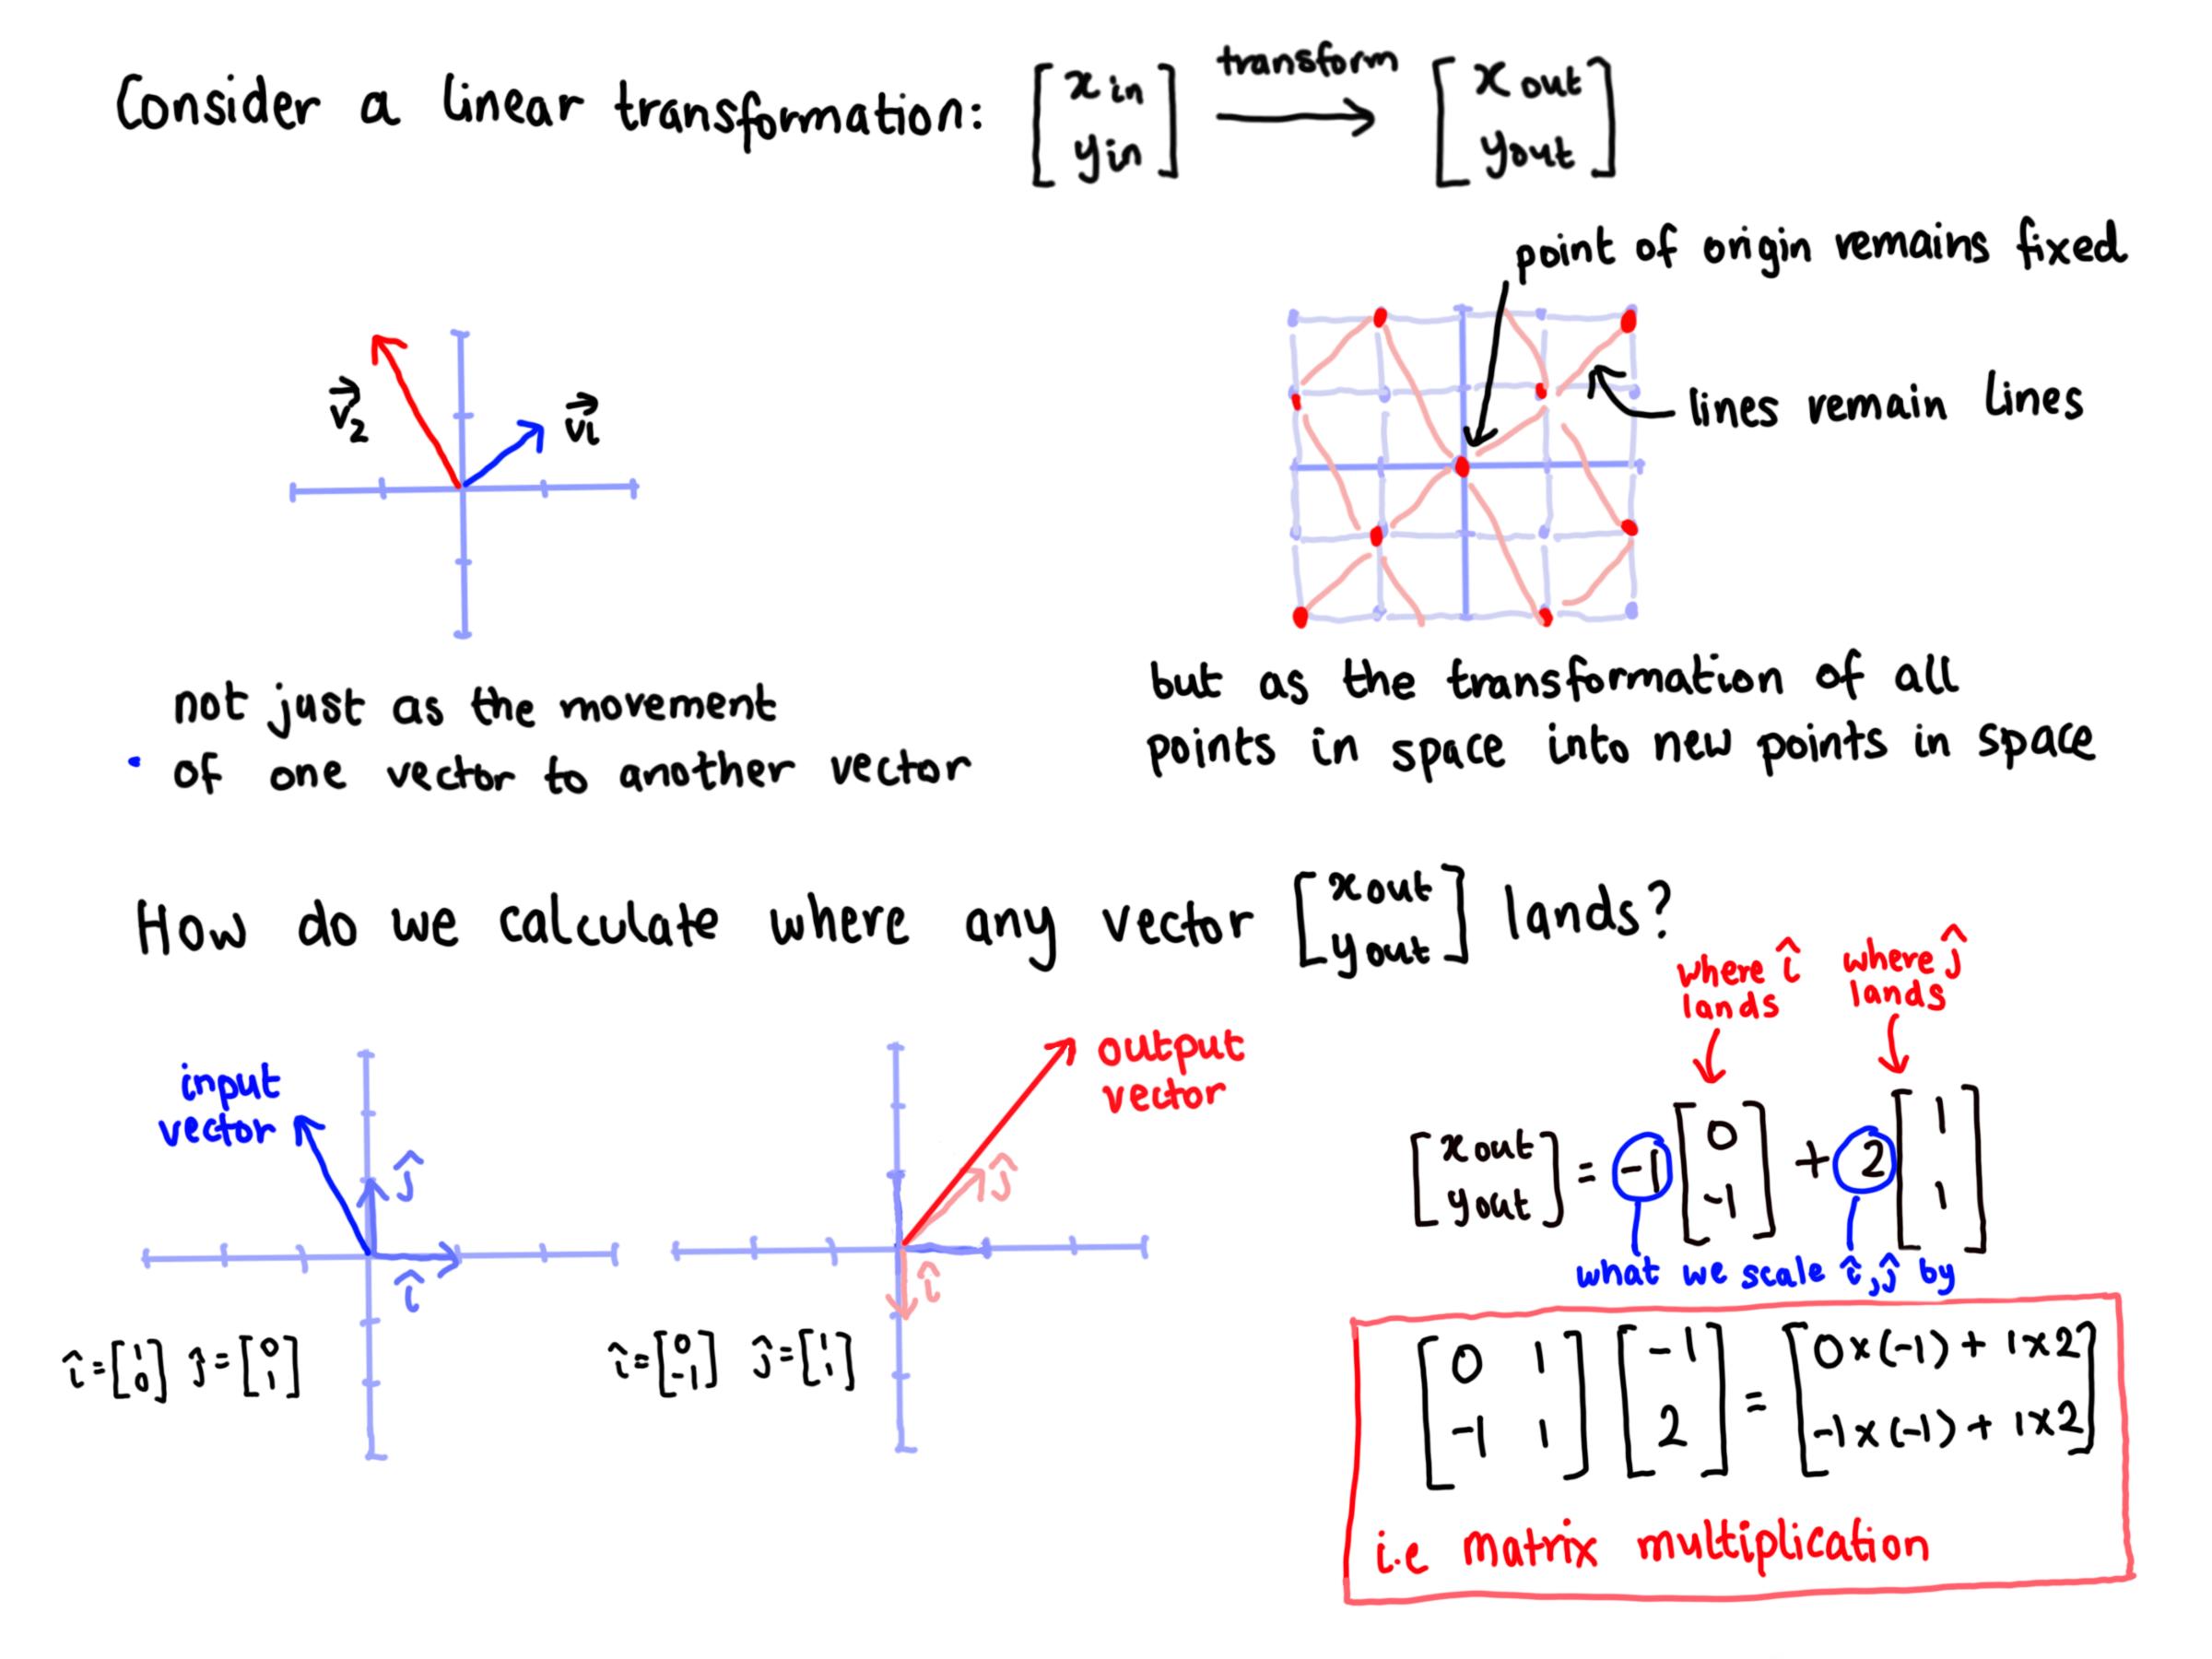 Consider a linear transformation: [x in y in] transform → [x out y out]
point of origin remains fixed
lines remain lines
v₂ v₁
not just as the movement
of one vector to another vector
but as the transformation of all
points in space into new points in space
How do we calculate where any vector [x out y out] lands?
where î lands
where ĵ lands
input vector
ĵ
î
î = [1 0] ĵ = [0 1]
output vector
ĵ
î
î = [0 -1] ĵ = [1 1]
[x out y out] = -1 [0 -1] + 2 [1 1]
what we scale î, ĵ by
[0 1 -1 1] [-1 2] = [0x(-1) + 1x2 -1x(-1) + 1x2]
i.e matrix multiplication